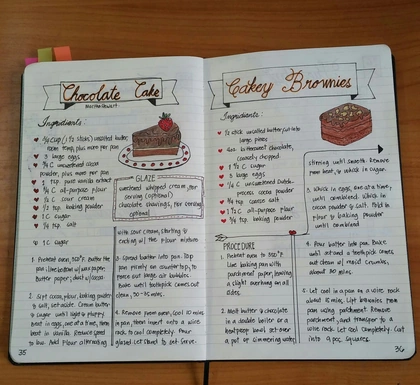 Chocolate Cake
Martha Stewart
Ingredients:
3/4 cup (1 1/2 sticks) unsalted butter,
room temp, plus more for pan
3 large eggs
3/4 c unsweetened cocoa
powder, plus more for pan
1 tsp. pure vanilla extract
1 1/2 c all-purpose flour
1 1/2 c sour cream
1 1/2 tsp. baking powder
1 c sugar
1/4 tsp. salt
1 c sugar
GLAZE
sweetened whipped cream, for
serving (optional)
chocolate shavings, for serving
(optional)
1. Preheat oven, 350°F. Butter the
pan; line bottom w/ wax paper;
butter paper; dust w/ cocoa
2. Sift cocoa, flour, baking powder
& salt, set aside. Cream butter &
sugar until light & fluffy
beat in eggs, one at a time, then
beat in vanilla. Reduce speed
to low. Add flour alternating
with sour cream, starting &
ending w/ the flour mixture
3. Spread batter into pan. Tap
pan firmly on counter top, to
force out large air bubbles
Bake until toothpick comes out
clean, 30-35 mins.
4. Remove from oven, cool 10 mins
in pan, then invert onto a wire
rack to cool completely. Pour
glaze! Let stand to set. Serve.
35
Cakey Brownies
Ingredients:
1/2 stick unsalted butter, cut into
pieces
4oz. bittersweet chocolate,
coarsely chopped
1 1/2 c sugar
3 large eggs
1/4 c unsweetened Dutch-
process cocoa powder
3/4 tsp coarse salt
1 1/2 c all-purpose flour
3/4 tsp. baking powder
PROCEDURE
1. Preheat oven to 350°F
Line baking pan with
parchment paper, leaving
a slight overhang on all
sides.
2. Melt butter & chocolate
in a double boiler or a
heatproof bowl set over
a pot of simmering water,
stirring until smooth. Remove
from heat, & whisk in sugar.
3. Whisk in eggs, one at a time,
until combined. Whisk in
cocoa powder & salt. Fold in
flour & baking powder
until combined
4. Pour batter into pan. Bake
until inserted a toothpick comes
out clean w/ moist crumbs,
about 30 mins
5. Let cool in a pan on a wire rack
about 15 mins. Lift brownies from
pan using parchment. Remove
parchment, and transfer to a
wire rack. Let cool completely. Cut
into 9 pcs. squares.
36